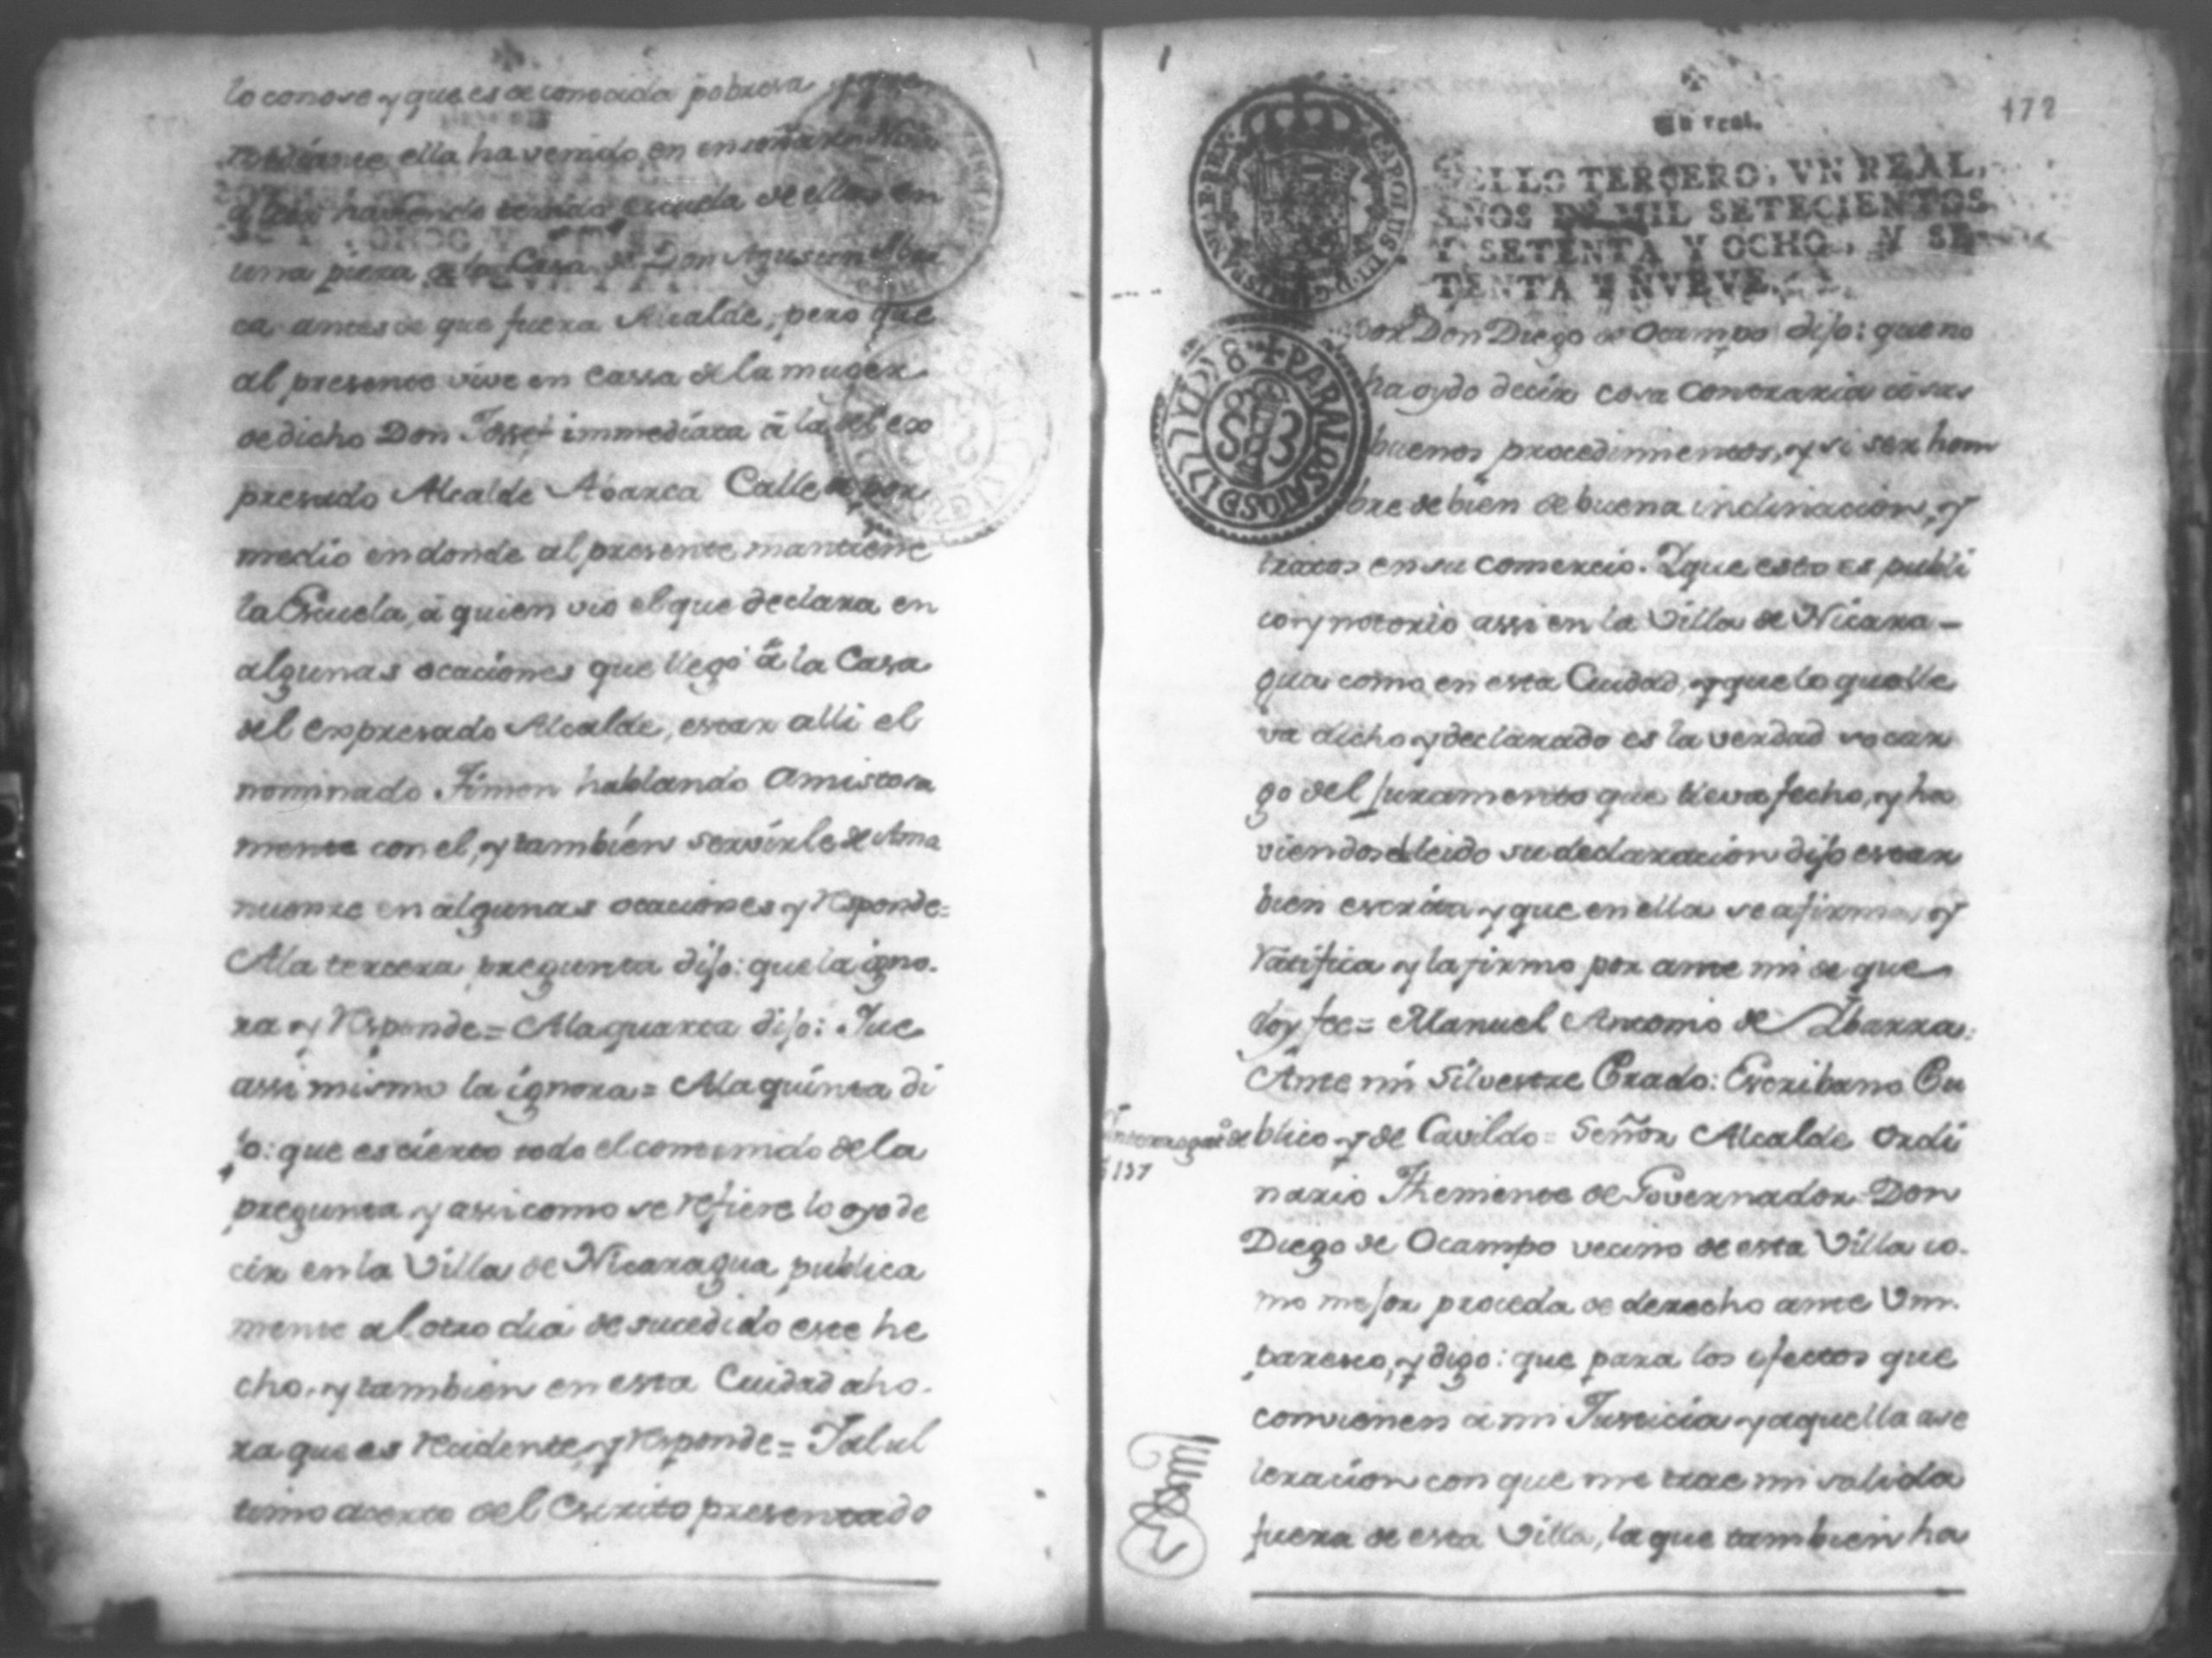 lo conose y que es de conocida pobresa y que
mediante ella ha venido en enseñar Niños
a leer haviendo tenido escuela de ellos en
una piesa de la Casa de Don Agustin Abar
ca antes de que fuera Alcalde, pero que
al presente vive en cassa de la muger
de dicho Don Josse immediata â la del ex
presado Alcalde Abarca Calle de por
medio en donde al presente mantiene
la Escuela, a quien vio el que declara en
algunas ocaciones que llegó â la Casa
del expresado Alcalde, estar alli el
nominado Simon hablando amistosa
mente con el, y tambien servirle de Ama
nuense en algunas ocaciones y responde=
Ala tercera pregunta dijo: que la igno.
ra y responde= Ala quarta dijo: Que
assi mismo la ignora= Ala quinta di
jo: que es cierto todo el contenido de la
pregunta y assi como se refiere lo oyo de
cir en la Villa de Nicaragua publica
mente al otro dia de sucedido este he
cho, y tambien en esta Ciudad aho.
ra que es recidente, y responde= Y al ul
timo acerto del Escrito presentado
172
Un real.
SELLO TERCERO, VN REAL,
AÑOS DE MIL SETECIENTOS
Y SETENTA Y OCHO, Y SE
TENTA Y NVEVE.
CAROLUS III D G HISPANIAR REX
PARA LOS AÑOS D 1782 Y 83
por Don Diego de Ocampo dijo: que no
ha oydo decir cosa contraria a sus
buenos procedimientos, y si ser hom
bre de bien de buena inclinacion, y
tratos en su comercio. Y que esto es publi
co y notorio assi en la Villa de Nicara-
gua como en esta Ciudad, y que lo que lle
va dicho y declarado es la verdad so car
go del juramento que lleva fecho, y ha
viendosele leido su declaracion dijo estar
bien escrita y que en ella se afirma, y
ratifica y la firmo por ante mi de que
doy fee= Manuel Antonio de Ybarra:
Ante mi Silvestre Prado: Escribano Pu
blico y de Cavildo= Señor Alcalde Ordi
137
nario Theniente de Governador= Don
Diego de Ocampo vecino de esta Villa co.
mo mejor proceda de derecho ante Vm.
paresco, y digo: que para los efectos que
convienen a mi Justicia y aquella ase
leracion con que me trae mi salida
fuera de esta Villa, la que tambien ha